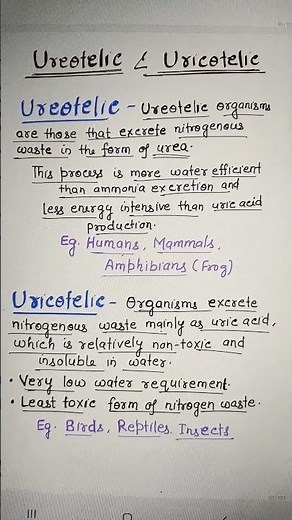 Ureotelic & Uricotelic
Ureotelic - Ureotelic organisms
are those that excrete nitrogenous
waste in the form of urea.
This process is more water efficient
than ammonia excretion and
less energy intensive than uric acid
production.
Eg. Humans, Mammals,
Amphibians (Frog)
Uricotelic - Organisms excrete
nitrogenous waste mainly as uric acid,
which is relatively non-toxic and
insoluble in water.
• Very low water requirement.
• Least toxic form of nitrogen waste.
Eg. Birds, Reptiles. Insects